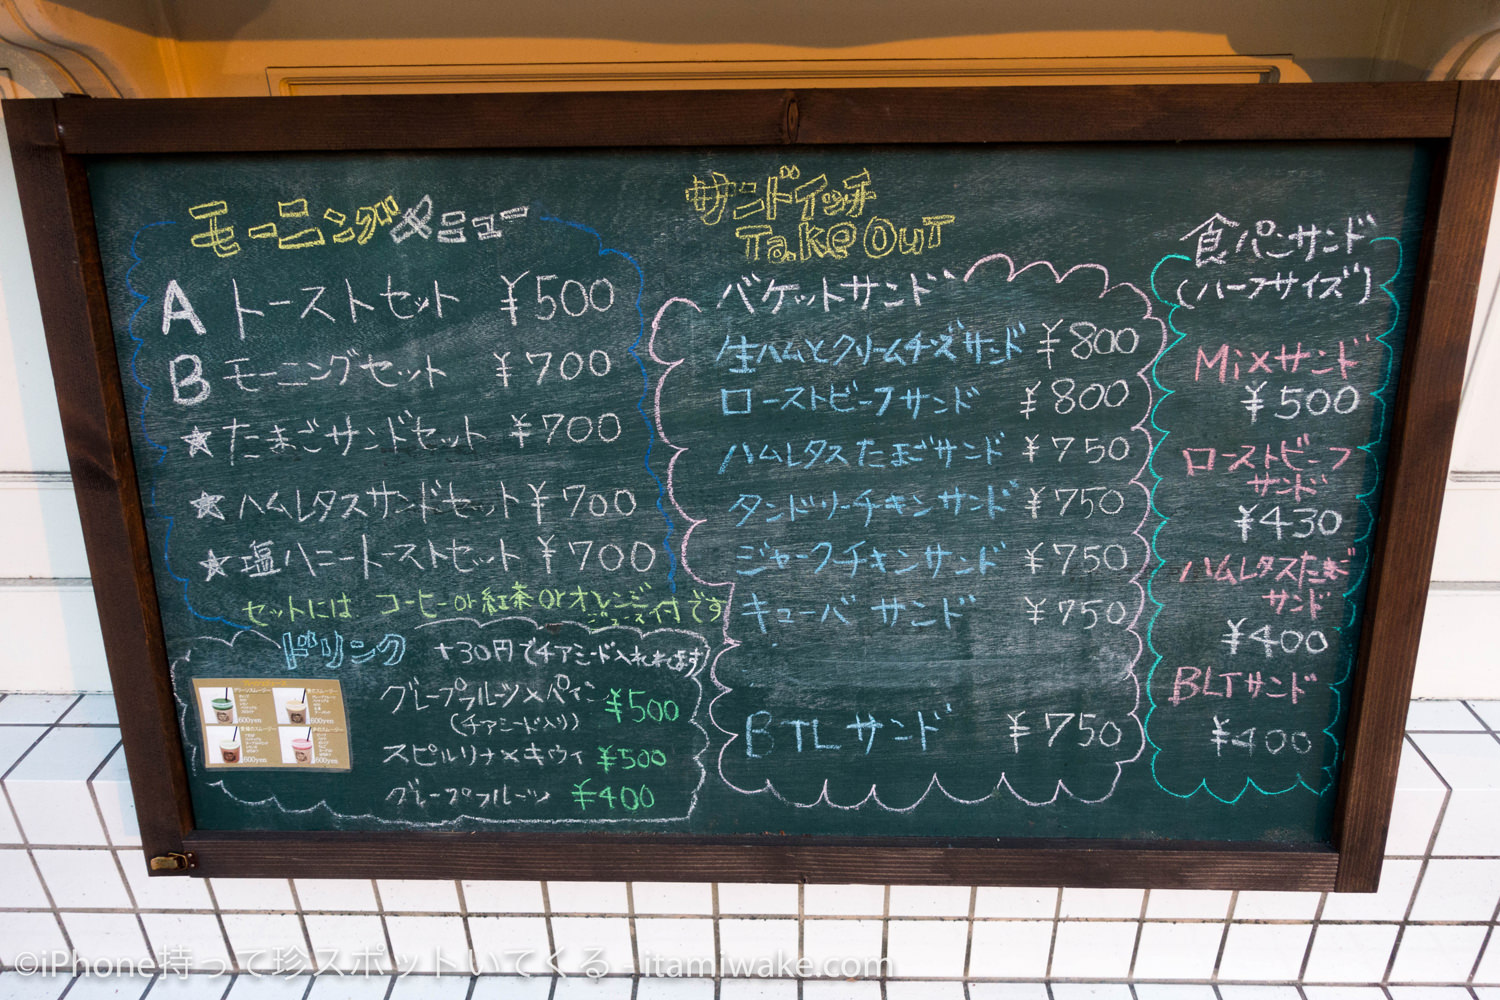 モーニングメニュー
A トーストセット ¥500
B モーニングセット ¥700
★たまごサンドセット ¥700
★ハムレタスサンドセット ¥700
★塩ハニートーストセット ¥700
セットには コーヒーor紅茶orオレンジジュース付です
ドリンク +30円でチアシード入れれます
グレープフルーツ×パイン ¥500
(チアシード入り)
スピルリナ×キウィ ¥500
グレープフルーツ ¥400
600yen
600yen
600yen
600yen
サンドイッチ
Take Out
バケットサンド
生ハムとクリームチーズサンド ¥800
ローストビーフサンド ¥800
ハムレタスたまごサンド ¥750
タンドリーチキンサンド ¥750
ジャークチキンサンド ¥750
キューバサンド ¥750
BTLサンド ¥750
食パンサンド
(ハーフサイズ)
Mixサンド
¥500
ローストビーフ
サンド
¥430
ハムレタスたまご
サンド
¥400
BLTサンド
¥400
©iPhone持って珍スポットいてくる - itamiwake.com